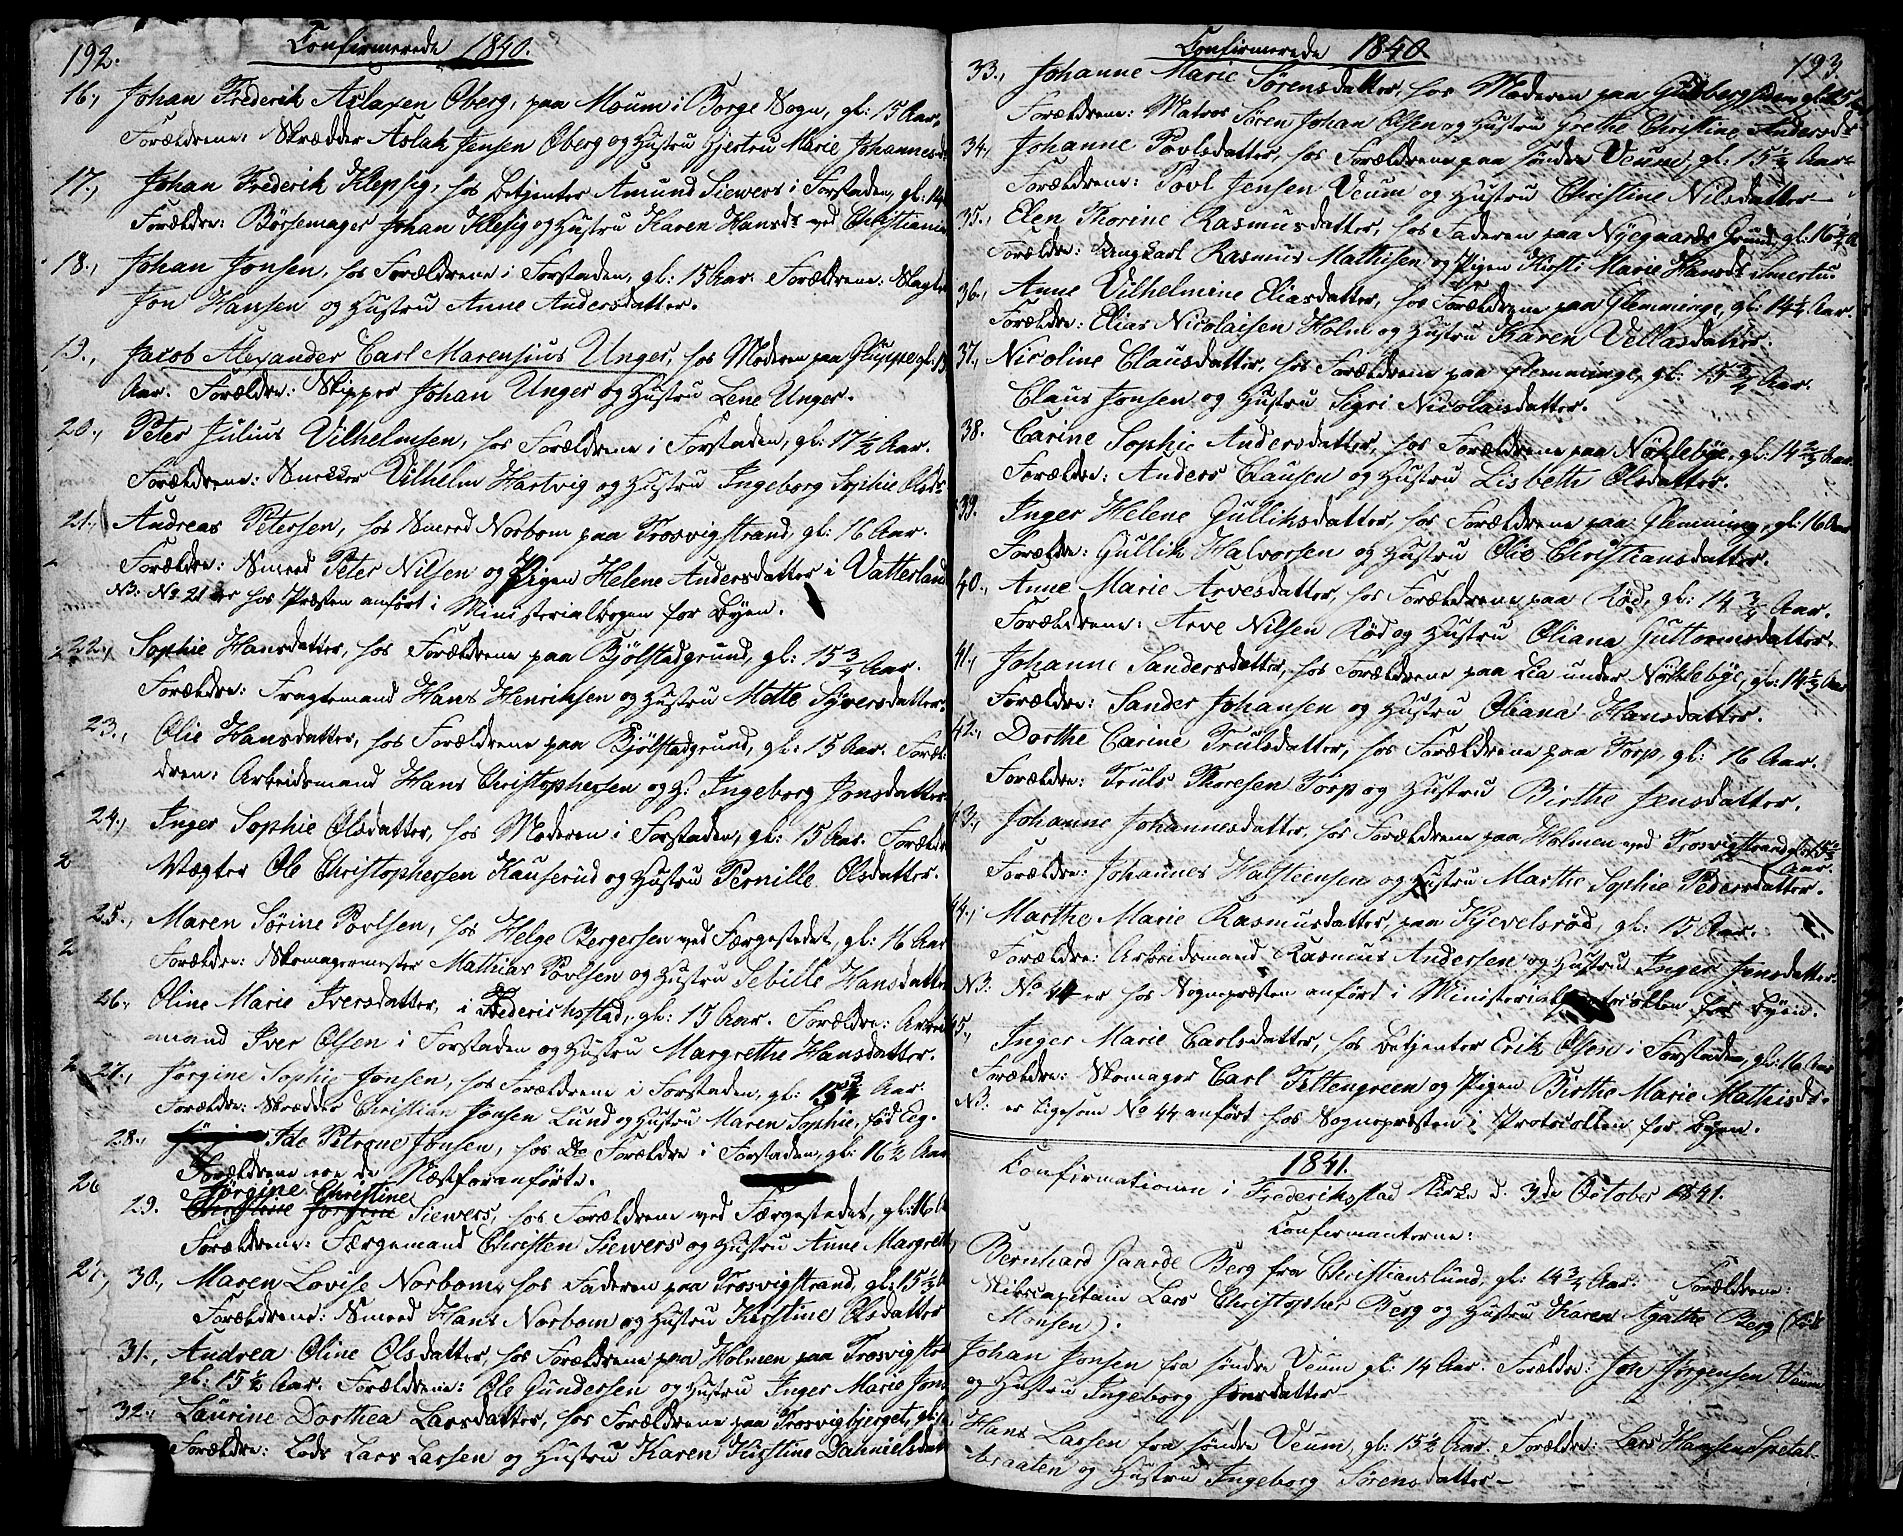 192.
Confirmerede 1840.
16., Johan Frederik Aslaksen Oberg, paa Moum i Borge Sogn, gl: 15 Aar.
Forældrene: Skrædder Aslak Jensen Oberg og Hustru Gjertru Marie Johannesd
17., Johan Frederik Klepzig, hos Betjenter Amund Siewers i Forstaden, gl: 14
Forældre: Børsemager Johan Klepsig og Hustru Karen Hansd: ved Christiania
18., Johan Jonsen, hos Forældrene i Forstaden, gl: 15 Aar. Forældrene: Slagter
Jon Hansen og Hustru Anne Andersdatter.
19., Jacob Alexander Carl Marensius Unger, hos Moderen paa Gluppe gl: 15
Aar. Forældre: Skipper Johan Unger og Hustru Lene Unger.
20., Peter Julius Vilhelmsen, hos Forældrene i Forstaden, gl: 17½ Aar.
Forældrene: Snekker Vilhelm Hartvig og Hustru Ingeborg Sophie Olsd:
21., Andreas Petersen, hos Smeed Norbom paa Trosvigstrand gl: 16 Aar.
Forældre: Smeed Peter Nilsen og Pigen Helene Andersdatter i Vatterland
NB: No 21 er hos Præsten anført i Ministerialbogen for Byen.
22., Sophie Hansdatter, hos Forældrene paa Bjølstadgrund, gl: 15¾ Aar.
Forældre: Fragtemand Hans Henriksen og Hustru Mette Syversdatter.
23., Olie Hansdatter, hos Forældrene paa Bjølstadgrund, gl: 15 Aar. Foræl-
dren: Arbeidsmand Hans Christophersen og H: Ingeborg Jonsdatter
24., Inger Sophie Olsdatter, hos Moderen i Forstaden, gl: 15 Aar. Forældre
Vægter Ole Christophersen Kauserud og Hustru Pernille Olsdatter.
25., Maren Sørine Povlsen, hos Helge Bergersen ved Færgestedet, gl: 16 Aar
Forældre: Skomagermester Mathias Povlsen og Hustru Sebille Hansdatter
26., Oline Marie Iversdatter, i Frederichsstad, gl: 15 Aar. Forældre: Arbeids
mand Iver Olsen i Forstaden og Hustru Margrethe Hansdatter.
27., Jørgine Sophie Jonsen, hos Forældrene i Forstaden, gl: 15¾ Aar.
Forældre: Skrædder Christian Jonsen Lund og Hustru Maren Sophie, fød Eeg.
28., Ide Petrone Jonsen, hos Do Forældre i Forstaden, gl: 16½ Aar
Forældrene ere de Næstforanførte.
Jørgine Christine
29. Siewers, hos Forældrene ved Færgestedet, gl:
Forældrene: Færgemand Christen Siewers og Hustru Anne Margrethe
30., Maren Lovise Norbom, hos Faderen paa Trosvigstrand, gl: 15½
Forældrene: Smeed Hans Norbom og Hustru Kirstine Olsdatter
31., Andrea Oline Olsdatter, hos Forældrene paa Holmen paa Trosvigstr
gl: 15½ Aar. Forældrene: Ole Gundersen og Hustru Inger Marie Jons
32., Laurine Dorthea Larsdatter, hos Forældrene paa Trosvigbjerget, gl:
Forældre: Lods Lars Larsen og Hustru Karen Kirstine Danielsdat
193.
Confirmerede 1840
33., Johanne Marie Sørensdatter, hos Moderen paa Gudbergsden gl: 15
Forældrene: Matros Søren Johan Olsen og Hustru Grethe Christine Andersd:
34., Johanne Povlsdatter, hos Forældrene paa søndre Veum, gl: 15½ Aar
Forældrene: Povl Jensen Veum og Hustru Christine Nilsdatter
35., Elen Thorine Rasmusdatter, hos Faderen paa Nyegaards Grund, gl: 16¾ A
Forældre: Ungkarl Rasmus Mathisen og Pigen Kirsti Marie Hansd:
36., Anne Vilhelmine Eliasdatter, hos Forældrene paa Glemminge, gl: 14½ Aar.
Forældre: Elias Nicolaisen Holm og Hustru Karen Vellasdatter.
37., Nicoline Clausdatter, hos Forældrene paa Glemminge, gl: 15¾ Aar.
Claus Jonsen og Hustru Sigri Nicolaisdatter.
38. Carine Sophie Andersdatter, hos Forældrene paa Nøklebye, gl: 14⅔ Aar.
Forældre: Anders Clausen og Hustru Lisbeth Olsdatter.
39. Inger Helene Gulliksdatter, hos Forældrene paa Glemming, gl: 16 Aar
Forældre: Gullik Halvorsen og Hustru Olie Christiansdatter.
40., Anne Marie Arvesdatter, hos Forældrene paa Rød, gl: 14¾ Aar.
Forældrene: Arve Nilsen Rød og Hustru Oliana Guttormsdatter.
41., Johanne Sandersdatter, hos Forældrene paa Lia under Nøklebye, gl: 14⅔ Aar
Forældre: Sander Johansen og Hustru Oliana Hansdatter.
42., Dorthe Carine Trulsdatter, hos Forældrene paa Torp, gl: 16 Aar.
Forældre: Truls Thoresen Torp og Hustru Birthe Jensdatter.
43., Johanne Johannesdatter, hos Forældrene paa Holmen ved Trosvigstrand gl: 15⅔
Aar.
Forældre: Johannes Halsteensen og Hustru Marthe Sophie Pedersdatter.
44., Marthe Marie Rasmusdatter, paa Kjevelsrød, gl: 15 Aar.
Forældre: Arbeidsmand Rasmus Andersen og Hustru Inger Jensdatter
NB: No 44 er hos Sognepræsten anført i Ministerialprotocollen for Byen.
45., Inger Marie Carlsdatter, hos Betjenter Erik Olsen i Forstaden, gl: 16 Aar
Forældre: Skomager Carl Tettengreen og Pigen Birthe Marie Mathisd:
NB: er ligesom No 44 anført hos Sognepræsten i Protocollen for Byen.
1841.
Confirmationen i Frederikstad Kirke d. 3de October 1841.
Confirmanterne:
Bernhard Gaarde Berg fra Christianslund, gl: 14¾ Aar. Forældrene:
Skibscapitain Lars Christopher Berg og Hustru Karen Agathe Berg (født
Monsen).
Johan Jonsen fra søndre Veum gl: 14 Aar. Forældre: Jon Jørgensen Veum
og Hustru Ingeborg Jonsdatter
Hans Larsen fra søndre Veum, gl: 15½ Aar. Forældre: Lars Hansen Spetal-
braaten og Hustru Ingeborg Sørensdatter